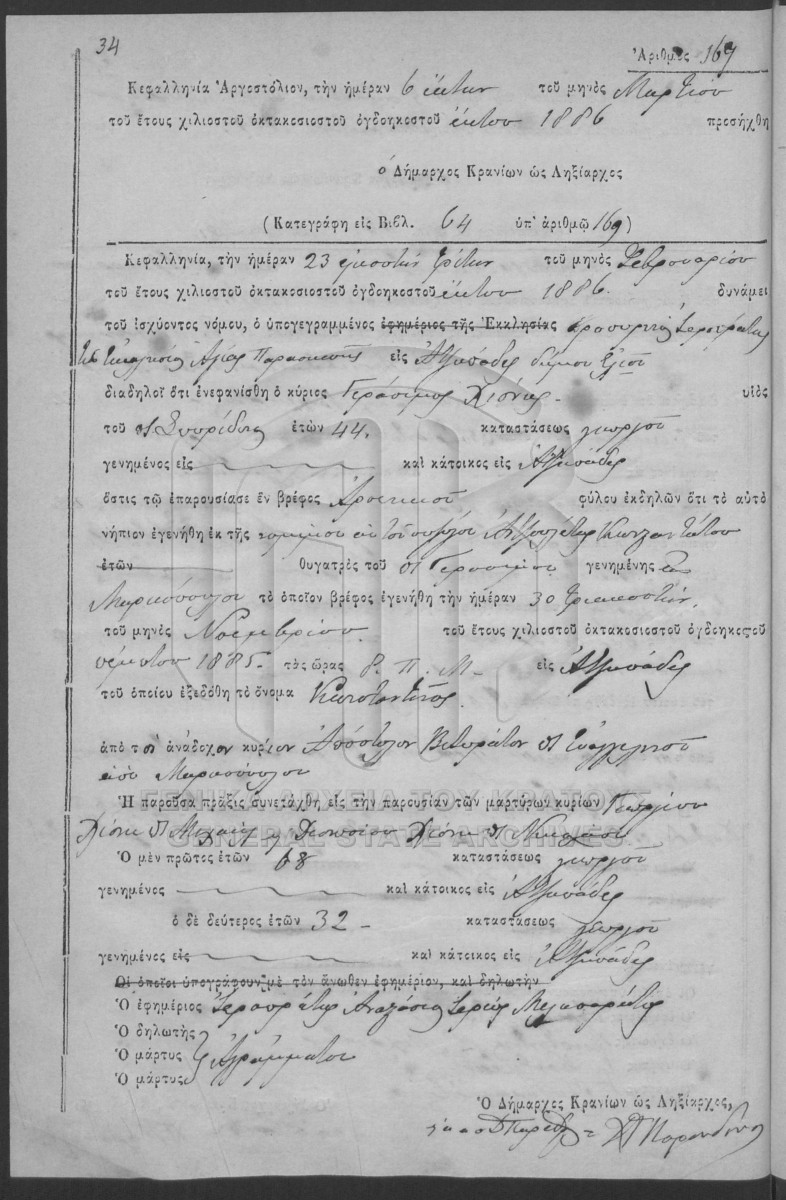 34
Ἀριθμὸς 169
Κεφαλληνία Ἀργοστόλιον, τὴν ἡμέραν 6 ἕκτην τοῦ μηνὸς Μαρτίου
τοῦ ἔτους χιλιοστοῦ ὀκτακοσιοστοῦ ὀγδοηκοστοῦ ἕκτου 1886 προσήχθη
ὁ Δήμαρχος Κρανίων ὡς Ληξίαρχος
(Κατεγράφη εἰς Βιβλ. 64 ὑπ' ἀριθμῷ 169)
Κεφαλληνία, τὴν ἡμέραν 23 εἰκοστὴν τρίτην τοῦ μηνὸς Φεβρουαρίου
τοῦ ἔτους χιλιοστοῦ ὀκτακοσιοστοῦ ὀγδοηκοστοῦ ἕκτου 1886. δυνάμει
τοῦ ἰσχύοντος νόμου, ὁ ὑπογεγραμμένος ἐφημέριος τῆς Ἐκκλησίας
τῆς Ἐκκλησίας Ἁγίας Παρασκευῆς εἰς Ἀτζουπάδες δήμου
διαδηλοῖ ὅτι ἐνεφανίσθη ὁ κύριος Γεράσιμος Χιόνης υἱὸς
τοῦ Σπυρίδωνος ἐτῶν 44. καταστάσεως γεωργοῦ
γενημένος εἰς καὶ κάτοικος εἰς Ἀτζουπάδες
ὅστις τῷ ἐπαρουσίασε ἓν βρέφος Ἀρσενικοῦ φύλου ἐκδηλῶν ὅτι τὸ αὐτὸ
νήπιον ἐγενήθη ἐκ τῆς νομίμου αὐτοῦ συζύγου
ἐτῶν θυγατρὸς τοῦ Γερασίμου γενημένης εἰς
Μαρκόπουλον τὸ ὁποῖον βρέφος ἐγενήθη τὴν ἡμέραν 30 τριακοστὴν
τοῦ μηνὸς Νοεμβρίου τοῦ ἔτους χιλιοστοῦ ὀκτακοσιοστοῦ ὀγδοηκοστοῦ
πέμπτου 1885. τὰς ὥρας 8. Π. Μ. εἰς Ἀτζουπάδες
τοῦ ὁποίου ἐξεδόθη τὸ ὄνομα Κωνσταντῖνος.
ἀπὸ τὸν ἀνάδοχον κύριον Ἀπόστολον Βικτωράτον Εὐαγγελινοῦ
ἀπὸ Μαρκόπουλον
Ἡ παροῦσα πρᾶξις συνετάχθη εἰς τὴν παρουσίαν τῶν μαρτύρων κυρίων Γεωργίου
Χιόνη Μιχαὴλ καὶ Διονυσίου Χιόνη Νικολάου
Ὁ μὲν πρῶτος ἐτῶν 68 καταστάσεως γεωργοῦ
γενημένος καὶ κάτοικος εἰς Ἀτζουπάδες
ὁ δὲ δεύτερος ἐτῶν 32 καταστάσεως γεωργοῦ
γενημένος εἰς καὶ κάτοικος εἰς Ἀτζουπάδες
Οἱ ὁποῖοι ὑπογράφουν μὲ τὸν ἄνωθεν ἐφημέριον, καὶ δηλωτὴν
Ὁ ἐφημέριος Ἱερουργήσας Ἀναστάσιος Ἱερεὺς
Ὁ δηλωτὴς
Ὁ μάρτυς Ἀγράμματοι
Ὁ μάρτυς
Ὁ Δήμαρχος Κρανίων ὡς Ληξίαρχος,
ΓΕΝΙΚΑ ΑΡΧΕΙΑ ΤΟΥ ΚΡΑΤΟΥΣ
GENERAL STATE ARCHIVES